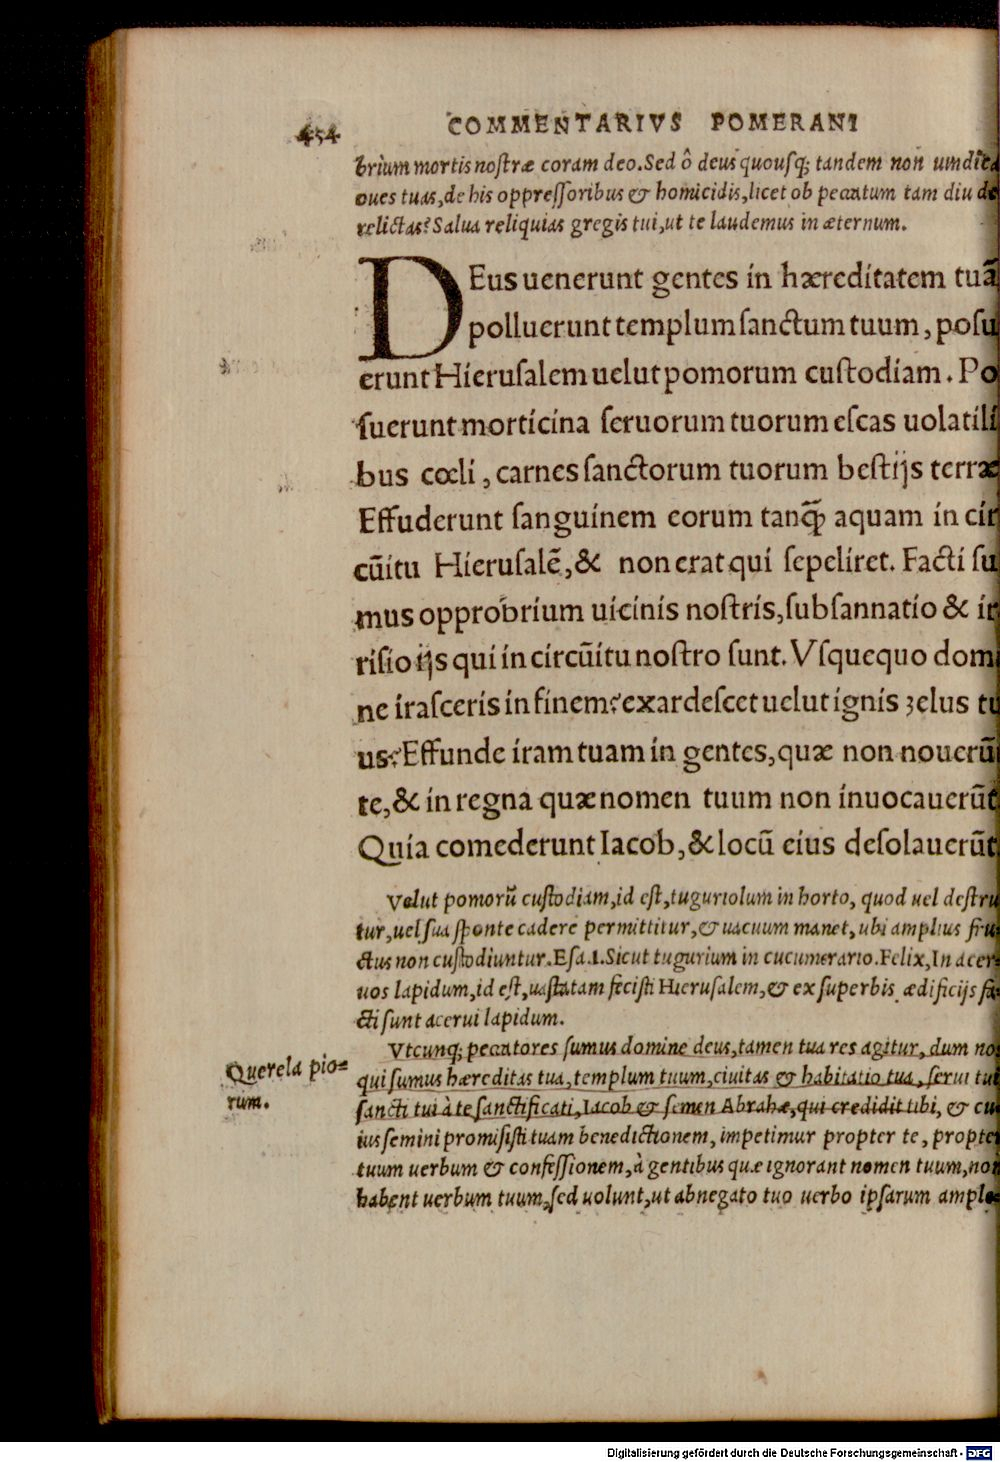 454
COMMENTARIVS POMERANI
brium mortis nostræ coram deo. Sed ô deus quousq; tandem non uindica
oues tuas, de his oppressoribus & homicidis, licet ob peccatum tam diu de
relictas? Salua reliquias gregis tui, ut te laudemus in æternum.
DEus uenerunt gentes in hæreditatem tuã
polluerunt templum sanctum tuum, posu
erunt Hierusalem uelut pomorum custodiam. Po
suerunt morticina seruorum tuorum escas uolatili
bus cœli, carnes sanctorum tuorum bestijs terræ
Effuderunt sanguinem eorum tanq̃ aquam in cir
cũitu Hierusalẽ, & non erat qui sepeliret. Facti su
mus opprobrium uicinis nostris, subsannatio & ir
risio ijs qui in circũitu nostro sunt. Vsquequo domi
ne irasceris in finem? exardescet uelut ignis zelus tu
us? Effunde iram tuam in gentes, quæ non nouerũ
te, & in regna quæ nomen tuum non inuocauerũt
Quia comederunt Iacob, & locũ eius desolauerũt
Velut pomorũ custodiam, id est, tuguriolum in horto, quod uel destru
tur, uel sua sponte cadere permittitur, & uacuum manet, ubi amplius fru-
ctus non custodiuntur. Esa. 1. Sicut tugurium in cucumerario. Felix, In acer-
uos lapidum, id est, uastatam fecisti Hierusalem, & ex superbis ædificijs fa-
cti sunt acerui lapidum.
Vtcunq; peccatores sumus domine deus, tamen tua res agitur, dum nos
qui sumus hæreditas tua, templum tuum, ciuitas & habitatio tua, serui tui
sancti tui à te sanctificati, Iacob & semen Abrahæ, qui credidit tibi, & cu
ius semini promisisti tuam benedictionem, impetimur propter te, propter
tuum uerbum & confessionem, à gentibus quæ ignorant nomen tuum, non
habent uerbum tuum, sed uolunt, ut abnegato tuo uerbo ipsarumample-
Querela pio-
rum.
Digitalisierung gefördert durch die Deutsche Forschungsgemeinschaft - DFG